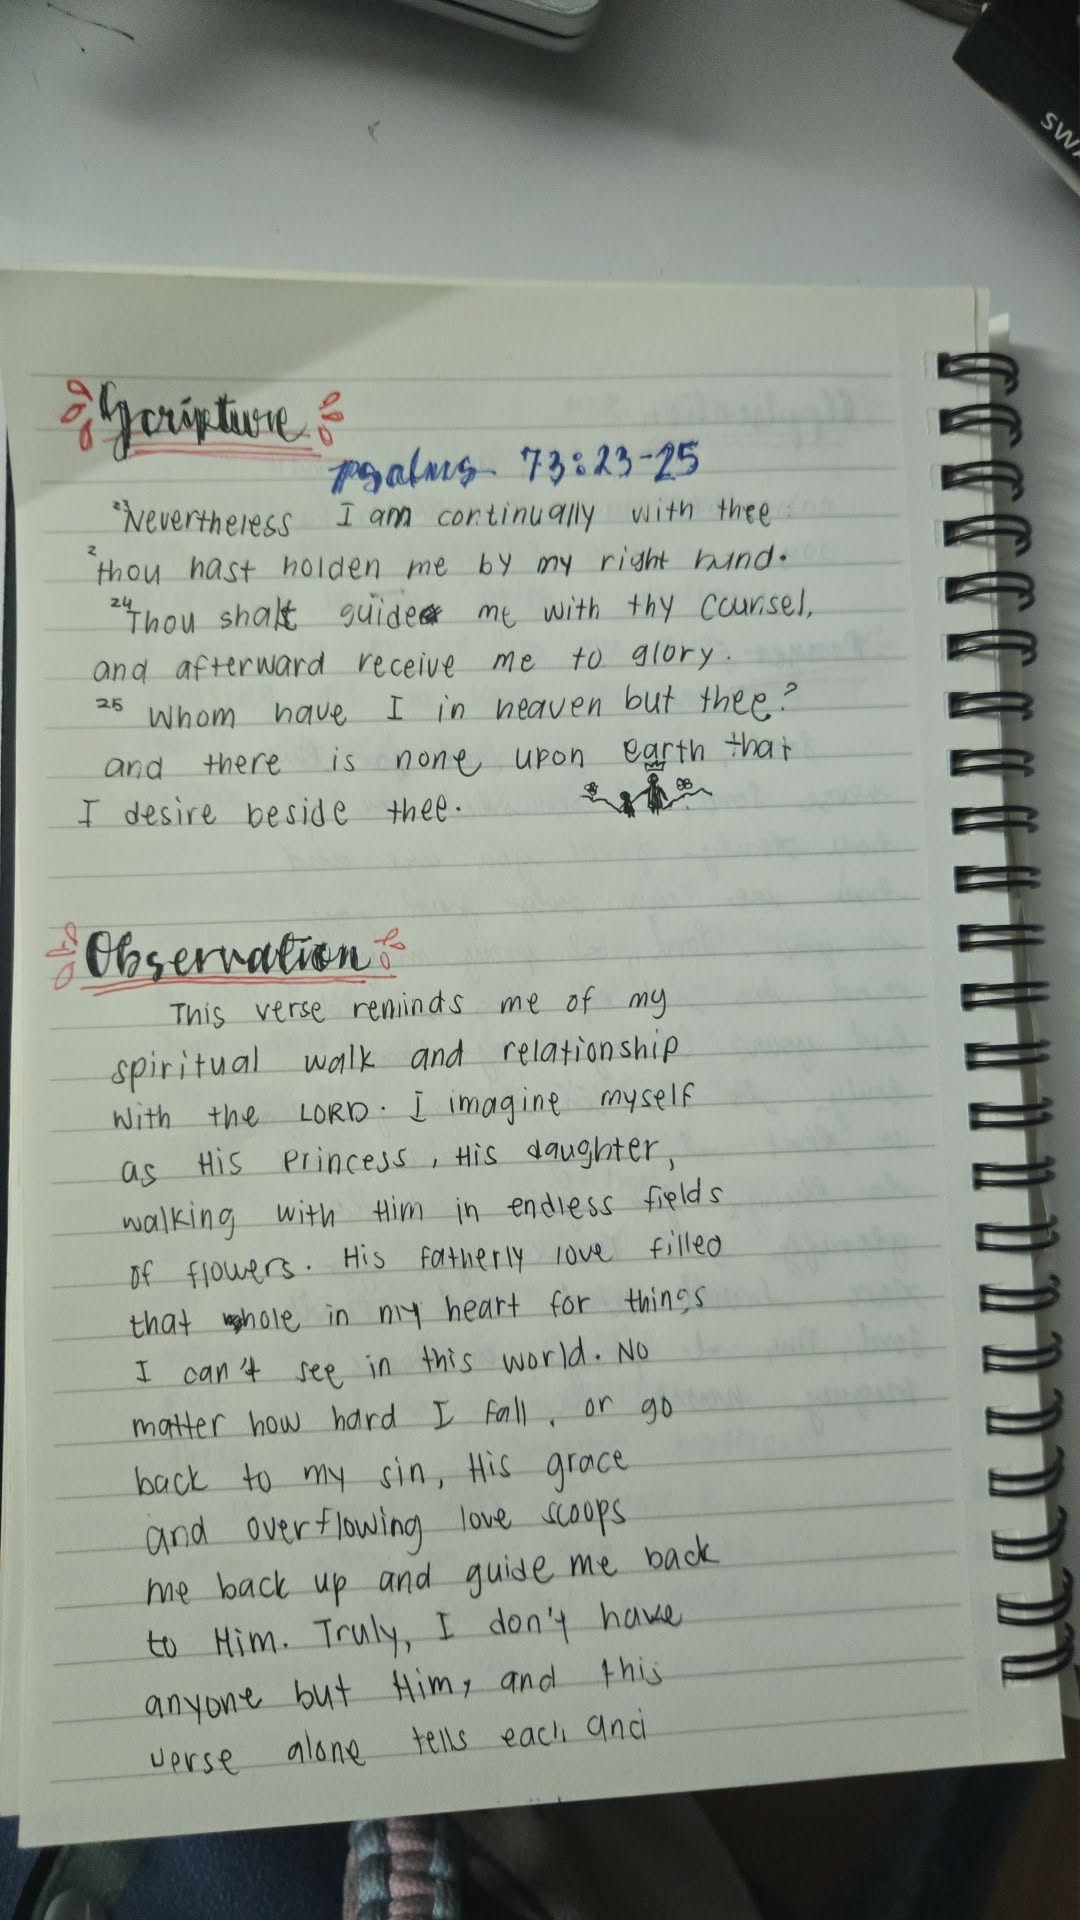 Scripture
psalms 73:23-25
23 Nevertheless I am continually with thee:
2 thou hast holden me by my right hand.
24 Thou shalt guide me with thy counsel,
and afterward receive me to glory.
25 Whom have I in heaven but thee?
and there is none upon earth that
I desire beside thee.
Observation
This verse reminds me of my
spiritual walk and relationship
with the LORD. I imagine myself
as His princess, His daughter,
walking with Him in endless fields
of flowers. His fatherly love filled
that whole in my heart for things
I can't see in this world. No
matter how hard I fall, or go
back to my sin, His grace
and overflowing love scoops
me back up and guide me back
to Him. Truly, I don't have
anyone but Him, and this
verse alone tells each and
SWA